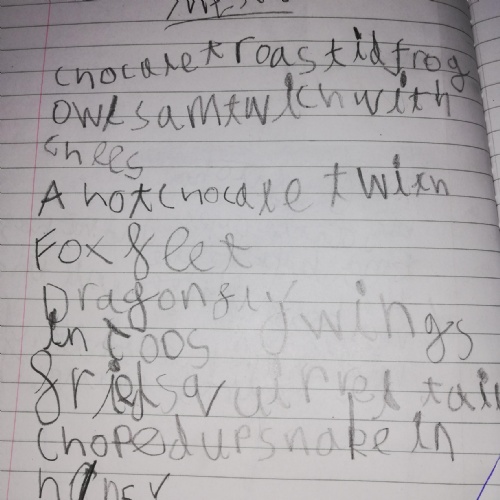 chocaletroastidfrog
owlsamtwichwith
chees
A hotchocalet with
Fox feet
Dragonfly wings
in foos
fridsquirrel tail
chopedupsnake in